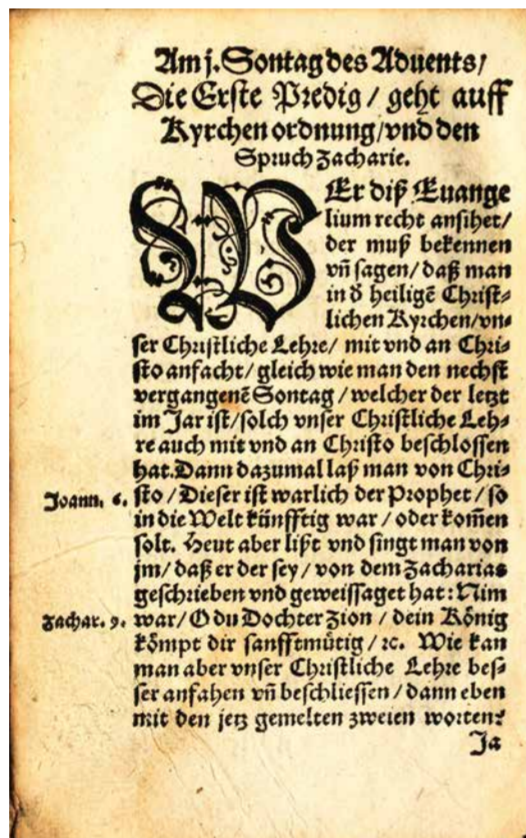 Am j. Sontag des Aduents/
Die Erste Predig / geht auff
Kyrchen ordnung/vnd den
Spruch Zacharie.
WEr diß Euange
lium recht ansihet/
der muß bekennen
vn̄ sagen/ daß man
in d̕ heiligē Christ⸗
lichen Kyrchen/vn⸗
ser Christliche Lehre/ mit vnd an Chri⸗
sto anfacht/ gleich wie man den nechst
vergangenē Sontag / welcher der letzt
im Jar ist/solch vnser Christliche Leh⸗
re auch mit vnd an Christo beschlossen
hat. Dann dazumal laß man von Chri⸗
Joann. 6. sto / Dieser ist warlich der Prophet / so
in die Welt künfftig war / oder kom̄en
solt. Heut aber lißt vnd singt man von
jm/ daß er der sey / von dem Zacharias
geschrieben vnd geweissaget hat: Nim
Zachar. 9. war/ O du Dochter Zion / dein König
kömpt dir sanfftmütig / ꝛc. Wie kan
man aber vnser Christliche Lehre bes⸗
ser anfahen vn̄ beschliessen / dann eben
mit den jetz gemelten zweien worten?
Ja